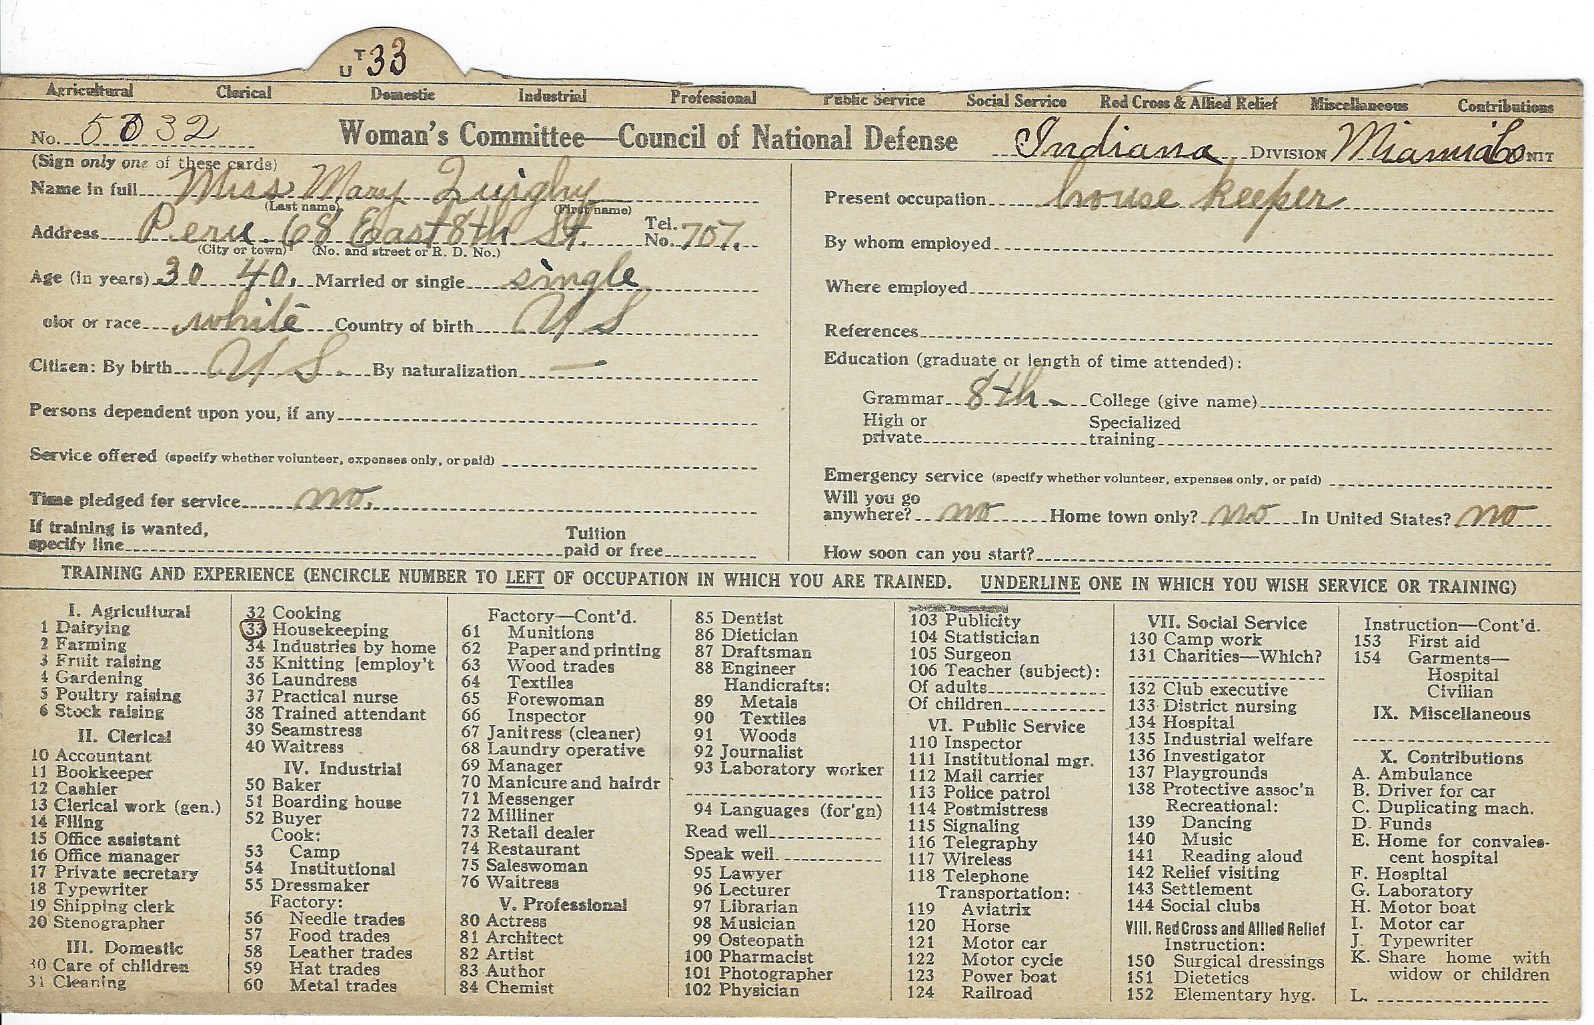 T
U 33
Agricultural Clerical Domestic Industrial Professional Public Service Social Service Red Cross & Allied Relief Miscellaneous Contributions
No. 5632 Woman's Committee—Council of National Defense Indiana DIVISION Miami Co UNIT
(Sign only one of these cards)
Name in full Miss Mary Quigby
(Last name) (First name)
Address Peru. 68 East 8th St. Tel. No. 707.
(City or town) (No. and street or R. D. No.)
Age (in years) 30 40. Married or single single
olor or race white Country of birth U S
Citizen: By birth U S. By naturalization —
Persons dependent upon you, if any
Service offered (specify whether volunteer, expenses only, or paid)
Time pledged for service no.
If training is wanted,
specify line
Tuition
paid or free
Present occupation house keeper
By whom employed
Where employed
References
Education (graduate or length of time attended):
Grammar 8th. College (give name)
High or
private
Specialized
training
Emergency service (specify whether volunteer, expenses only, or paid)
Will you go
anywhere? no Home town only? no In United States? no
How soon can you start?
TRAINING AND EXPERIENCE (ENCIRCLE NUMBER TO LEFT OF OCCUPATION IN WHICH YOU ARE TRAINED. UNDERLINE ONE IN WHICH YOU WISH SERVICE OR TRAINING)
I. Agricultural
1 Dairying
2 Farming
3 Fruit raising
4 Gardening
5 Poultry raising
6 Stock raising
II. Clerical
10 Accountant
11 Bookkeeper
12 Cashier
13 Clerical work (gen.)
14 Filing
15 Office assistant
16 Office manager
17 Private secretary
18 Typewriter
19 Shipping clerk
20 Stenographer
III. Domestic
30 Care of children
31 Cleaning
32 Cooking
33 Housekeeping
34 Industries by home
35 Knitting [employ't
36 Laundress
37 Practical nurse
38 Trained attendant
39 Seamstress
40 Waitress
IV. Industrial
50 Baker
51 Boarding house
52 Buyer
Cook:
53 Camp
54 Institutional
55 Dressmaker
Factory:
56 Needle trades
57 Food trades
58 Leather trades
59 Hat trades
60 Metal trades
Factory—Cont'd.
61 Munitions
62 Paper and printing
63 Wood trades
64 Textiles
65 Forewoman
66 Inspector
67 Janitress (cleaner)
68 Laundry operative
69 Manager
70 Manicure and hairdr
71 Messenger
72 Milliner
73 Retail dealer
74 Restaurant
75 Saleswoman
76 Waitress
V. Professional
80 Actress
81 Architect
82 Artist
83 Author
84 Chemist
85 Dentist
86 Dietician
87 Draftsman
88 Engineer
Handicrafts:
89 Metals
90 Textiles
91 Woods
92 Journalist
93 Laboratory worker
94 Languages (for'gn)
Read well
Speak well
95 Lawyer
96 Lecturer
97 Librarian
98 Musician
99 Osteopath
100 Pharmacist
101 Photographer
102 Physician
103 Publicity
104 Statistician
105 Surgeon
106 Teacher (subject):
Of adults
Of children
VI. Public Service
110 Inspector
111 Institutional mgr.
112 Mail carrier
113 Police patrol
114 Postmistress
115 Signaling
116 Telegraphy
117 Wireless
118 Telephone
Transportation:
119 Aviatrix
120 Horse
121 Motor car
122 Motor cycle
123 Power boat
124 Railroad
VII. Social Service
130 Camp work
131 Charities—Which?
132 Club executive
133 District nursing
134 Hospital
135 Industrial welfare
136 Investigator
137 Playgrounds
138 Protective assoc'n
Recreational:
139 Dancing
140 Music
141 Reading aloud
142 Relief visiting
143 Settlement
144 Social clubs
VIII. Red Cross and Allied Relief
Instruction:
150 Surgical dressings
151 Dietetics
152 Elementary hyg.
Instruction—Cont'd.
153 First aid
154 Garments—
Hospital
Civilian
IX. Miscellaneous
X. Contributions
A. Ambulance
B. Driver for car
C. Duplicating mach.
D. Funds
E. Home for convales-
cent hospital
F. Hospital
G. Laboratory
H. Motor boat
I. Motor car
J. Typewriter
K. Share home with
widow or children
L.